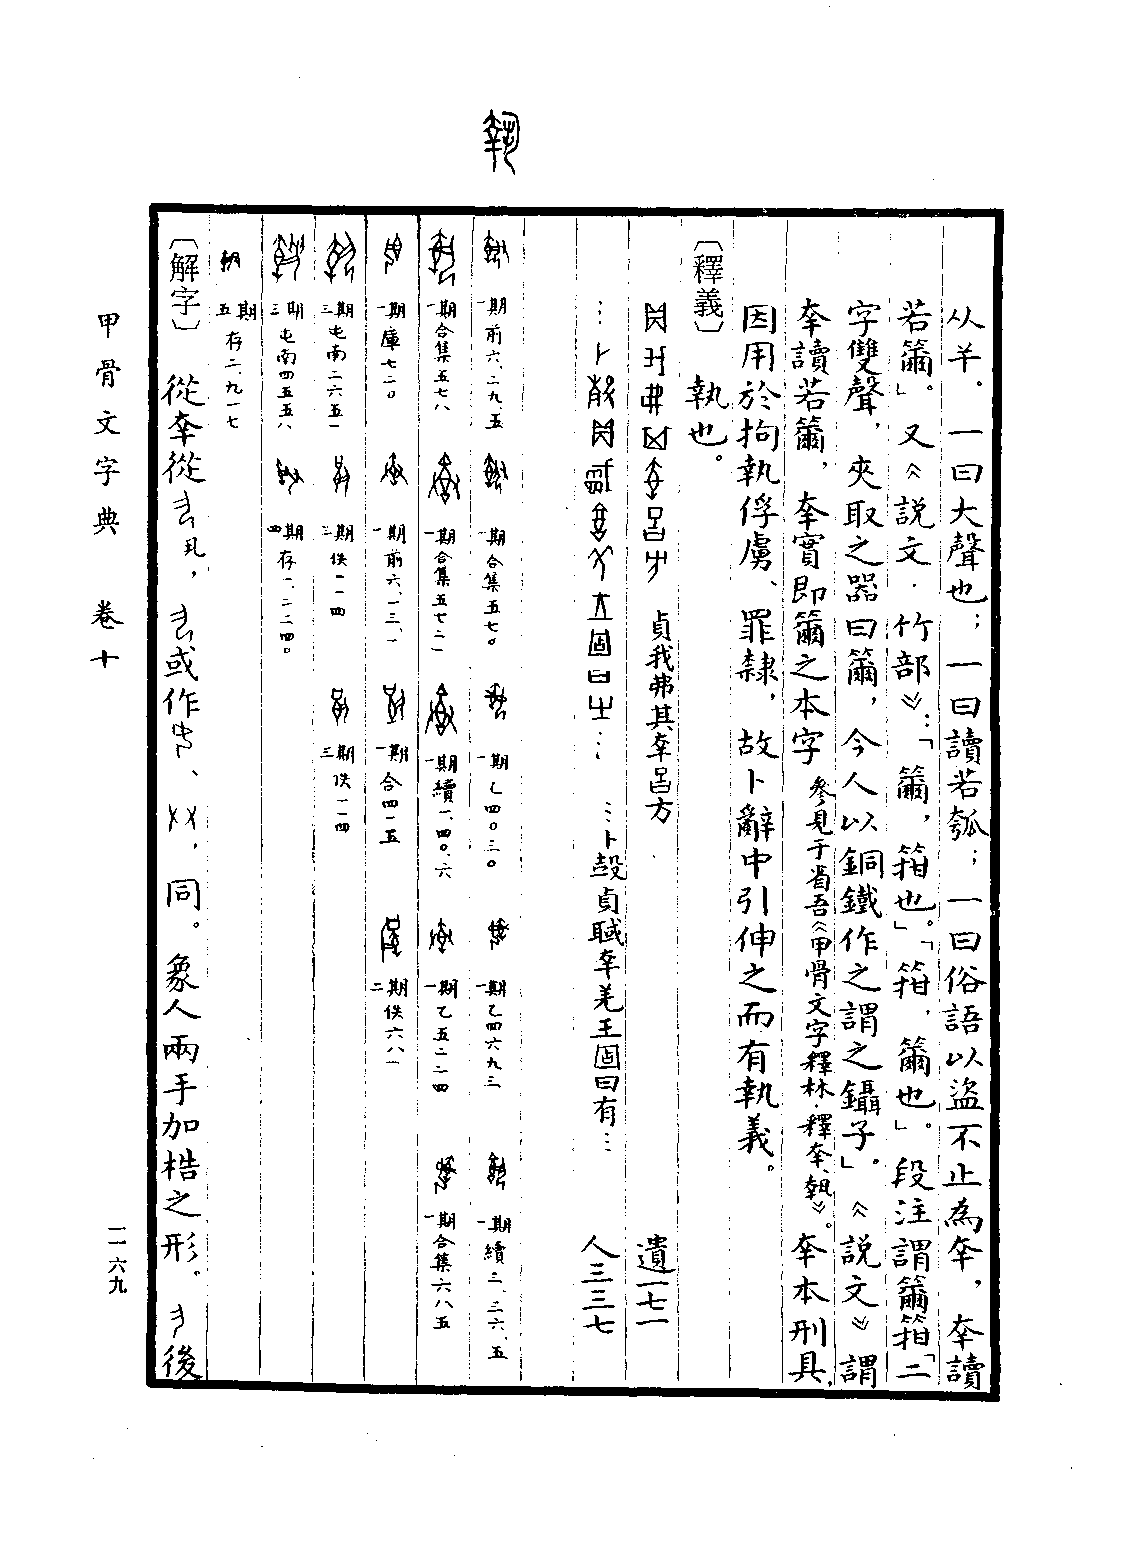 从𢆉。一曰大聲也；一曰讀若瓠；一曰俗語以盜不止為㚔，㚔讀
若籋。」又《說文·竹部》：「籋，箝也。」「箝，籋也。」段注謂籋箝「二
字雙聲，夾取之器曰籋，今人以銅鐵作之謂之鑷子」。《說文》謂
㚔讀若籋，㚔實即籋之本字參見于省吾《甲骨文字釋林·釋㚔、執》。㚔本刑具，
因用於拘執俘虜、罪隸，故卜辭中引伸之而有執義。
〔釋義〕執也。
貞我弗其㚔𠮷方 遺一七一
…卜㱿貞 㚔羌王固曰有… 人三三七
一期前六、二九、五 一期合集五七〇 一期乙四〇三〇 一期乙四六九三 一期續三、三六、五
一期合集五七八 一期合集五七二 一期續一、四〇、六 一期乙五二二四 一期合集六八五
一期庫七二〇 一期前六、一三、一 一期合四一五 二期佚六八一
三期屯南二六五一 三期佚一一四 三期佚一一四
三期屯南四五五八 四期存一、二二四〇
五期存二、九一七
〔解字〕從㚔從 丮， 或作 、 ，同。象人兩手加梏之形。 後
執
甲骨文字典 卷十
一一六九